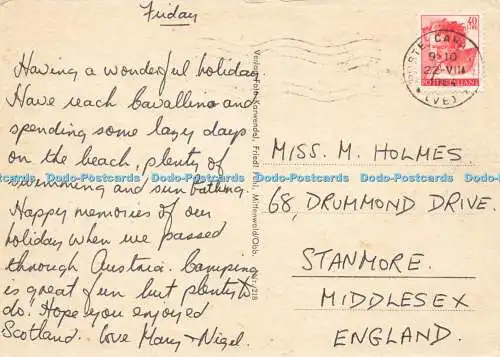 Friday
Having a wonderful holiday
Have reach Cavallino and
spending some lazy days
on the beach, plenty of
swimming and sun bathing.
Happy memories of our
holiday when we passed
through Austria. Camping
is great fun but plenty to
do. Hope you enjoyed
Scotland. Love Mary + Nigel.
40
9-10
22-VIII
(VE)
MISS. M. HOLMES.
68, DRUMMOND DRIVE.
STANMORE.
MIDDLESEX
ENGLAND.
Dodo-Postcards Dodo-Postcards Dodo-Postcards Dodo-Postcards Dodo-Postcards